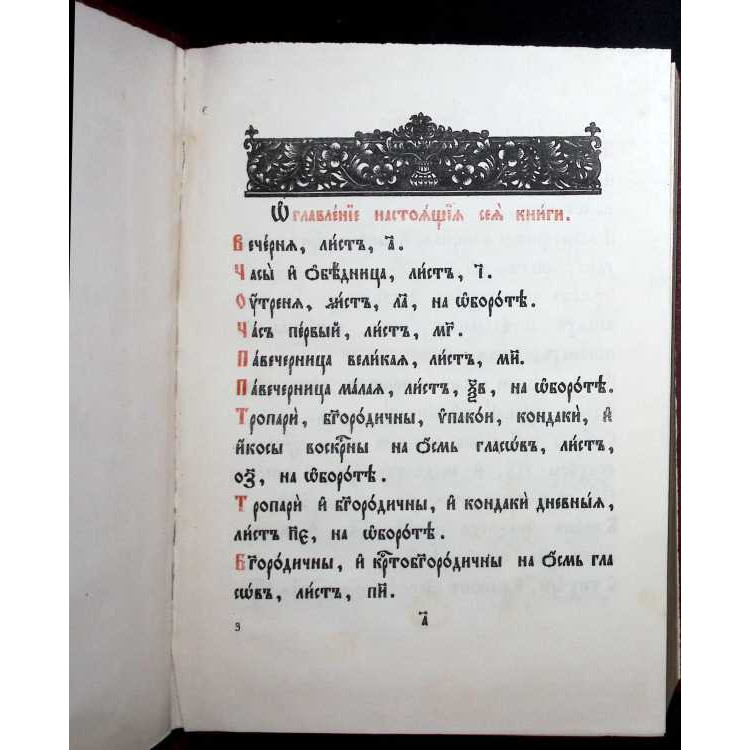 Ѡ҆главле́нїе настоѧ́щїѧ сеѧ̀ кни́ги.
Вече́рня, ли́стъ, а҃.
Часы̀ и҆ ѻ҆бѣ́дница, ли́стъ, і҃.
Оу҆́треня, ли́стъ, ла҃, на ѡ҆боро́тѣ.
Ча́съ пе́рвый, ли́стъ, мг҃.
Па́вечерница вели́кая, ли́стъ, ми҃.
Па́вечерница ма́лая, ли́стъ, ѯ҃в, на ѡ҆боро́тѣ.
Тропарѝ, бг҃оро́дичны, ѵ҆пакоѝ, кондакѝ, и҆
и҆́косы воскр҇ны на ѻ҆́смь гласѡ́въ, ли́стъ,
оз҃, на ѡ҆боро́тѣ.
Тропарѝ и҆ бг҃оро́дичны, и҆ кондакѝ дневны́ѧ,
ли́стъ п҃є, на ѡ҆боро́тѣ.
Бг҃оро́дичны, и҆ крⷭ҇тобг҃оро́дичны на ѻ҆́смь гла
сѡ́въ, ли́стъ, пи҃.
з а҃